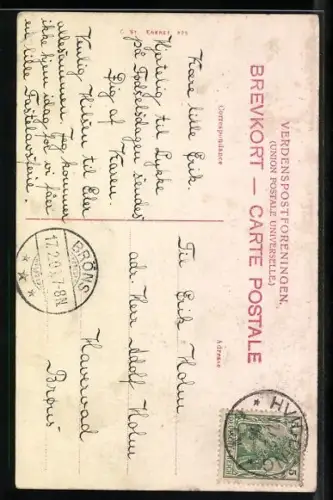 VERDENSPOSTFORENINGEN.
(UNION POSTALE UNIVERSELLE.)
BREVKORT — CARTE POSTALE
Correspondance
Adresse
Kære lille Erik.
Hjertelig til Lykke
på Fødselsdagen sendes
Dig af Karen.
Venlig Hilsen til Eder
allesammen. Jeg kommer
ikke hjem idag for vi får
en lille Fastelavnsferie.
Til Erik Holm
adr. Herr Adolf Holm
Haverwad
Bröns
BRÖNS
17.2.09. 7-8N